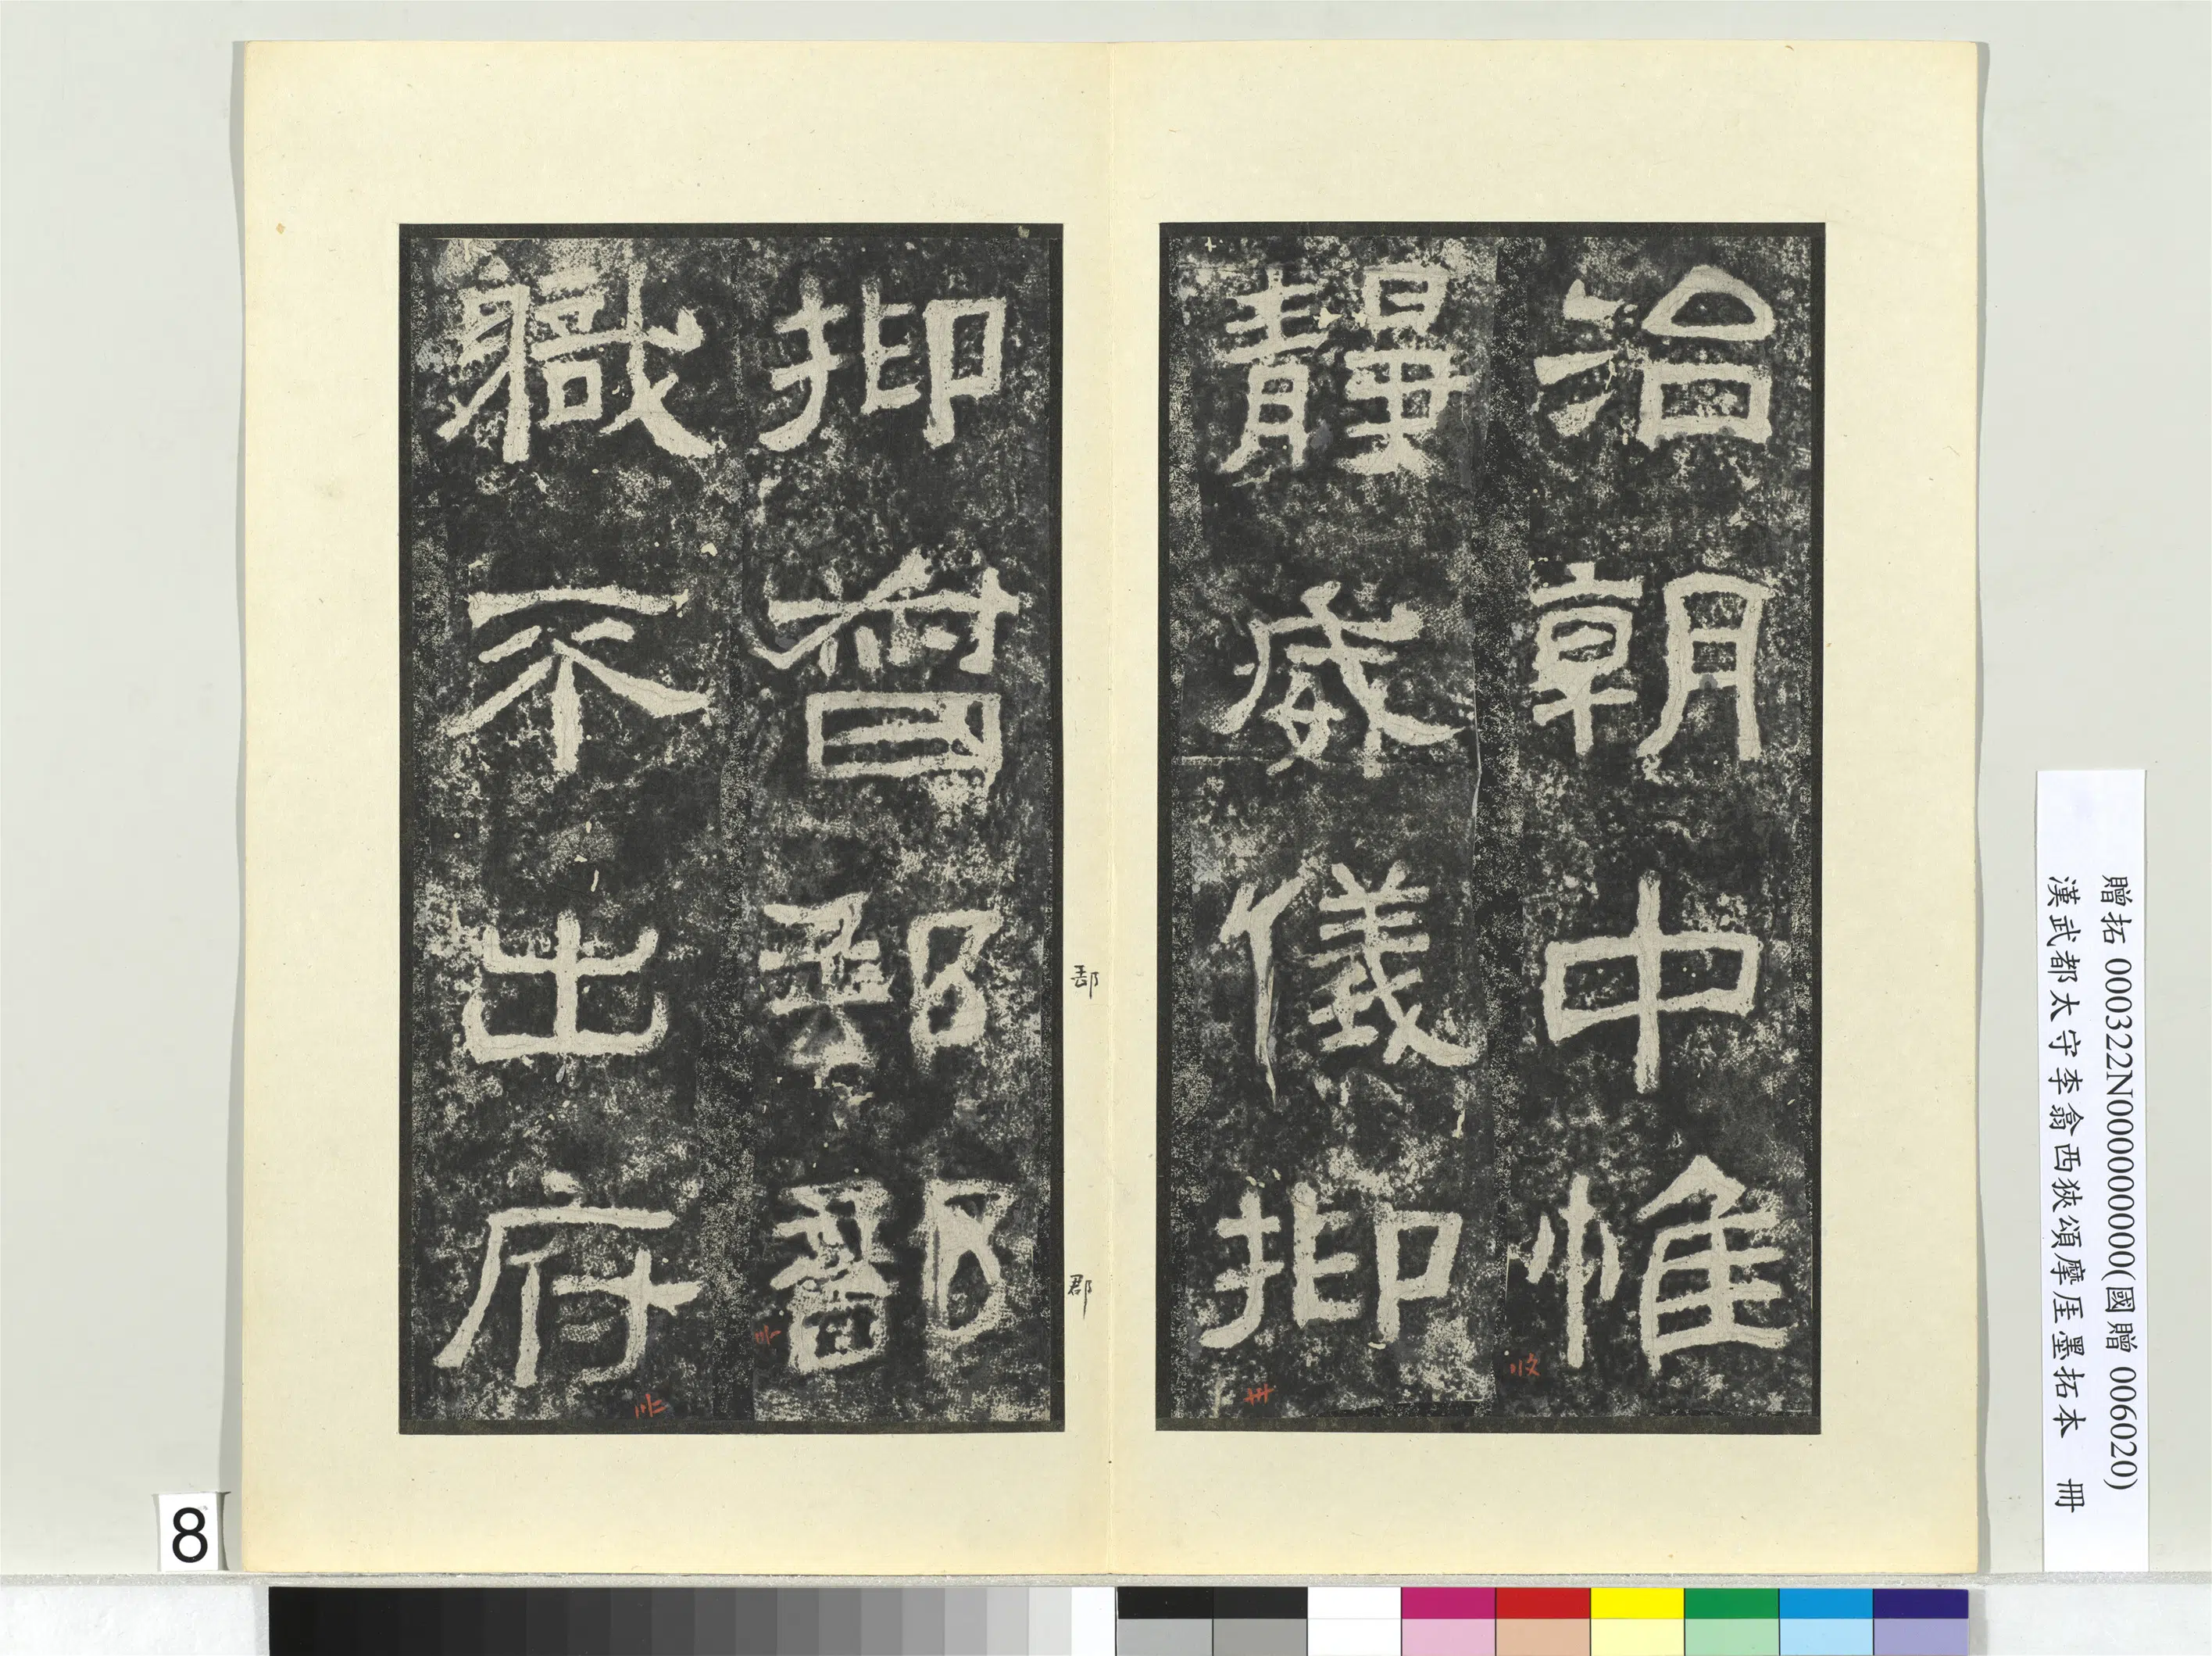 治朝中惟
靜威儀抑
抑督郵部
軄不出府
郡
贈拓 000322N000000000(國贈 006020)
漢武都太守李翕西狹頌摩厓墨拓本 冊
8